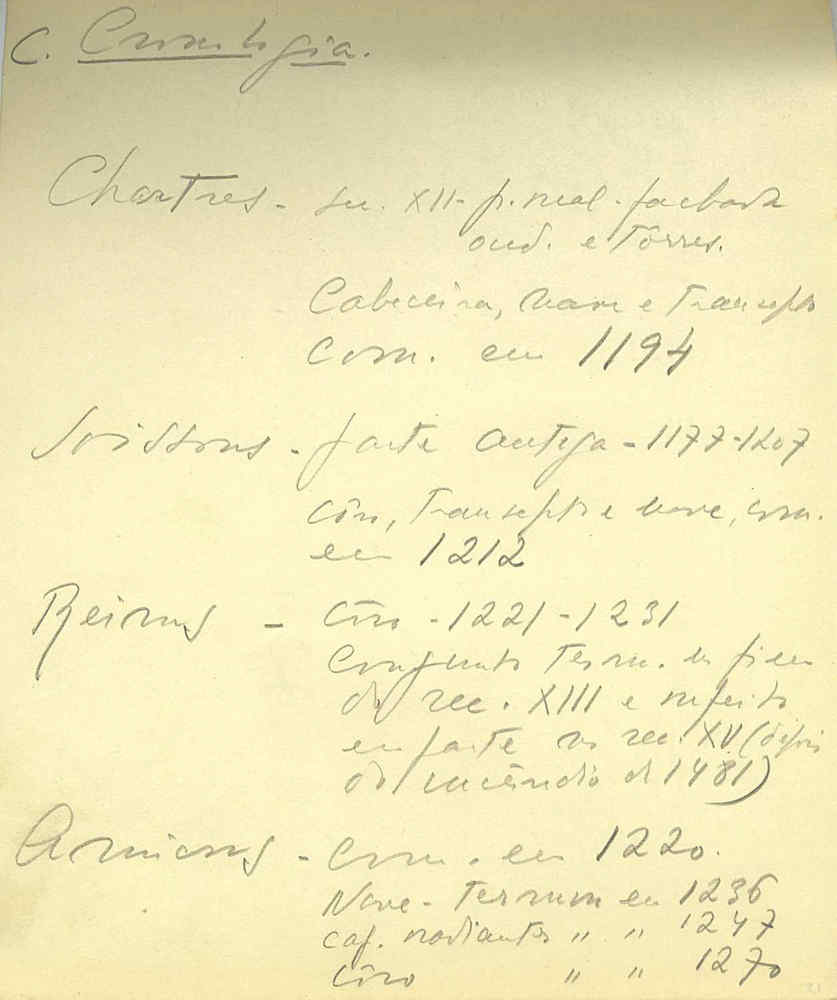 C. Cronologia.
Chartres - sec. XII - p. real - fachada
ocid. e Tôrres.
Cabeceira, nave e Transepto
com. em 1194
Soissons - parte antiga - 1177-1207
côro, Transepto e nave, com.
em 1212
Reims - Côro - 1221-1231
Conjunto Term. em fim
do sec. XIII e refeito
em parte no sec. XV (depois
do incêndio de 1481)
Amiens - Com. em 1220.
Nave - Terminou em 1236
cap. radiantes " " 1247
Côro " " 1270